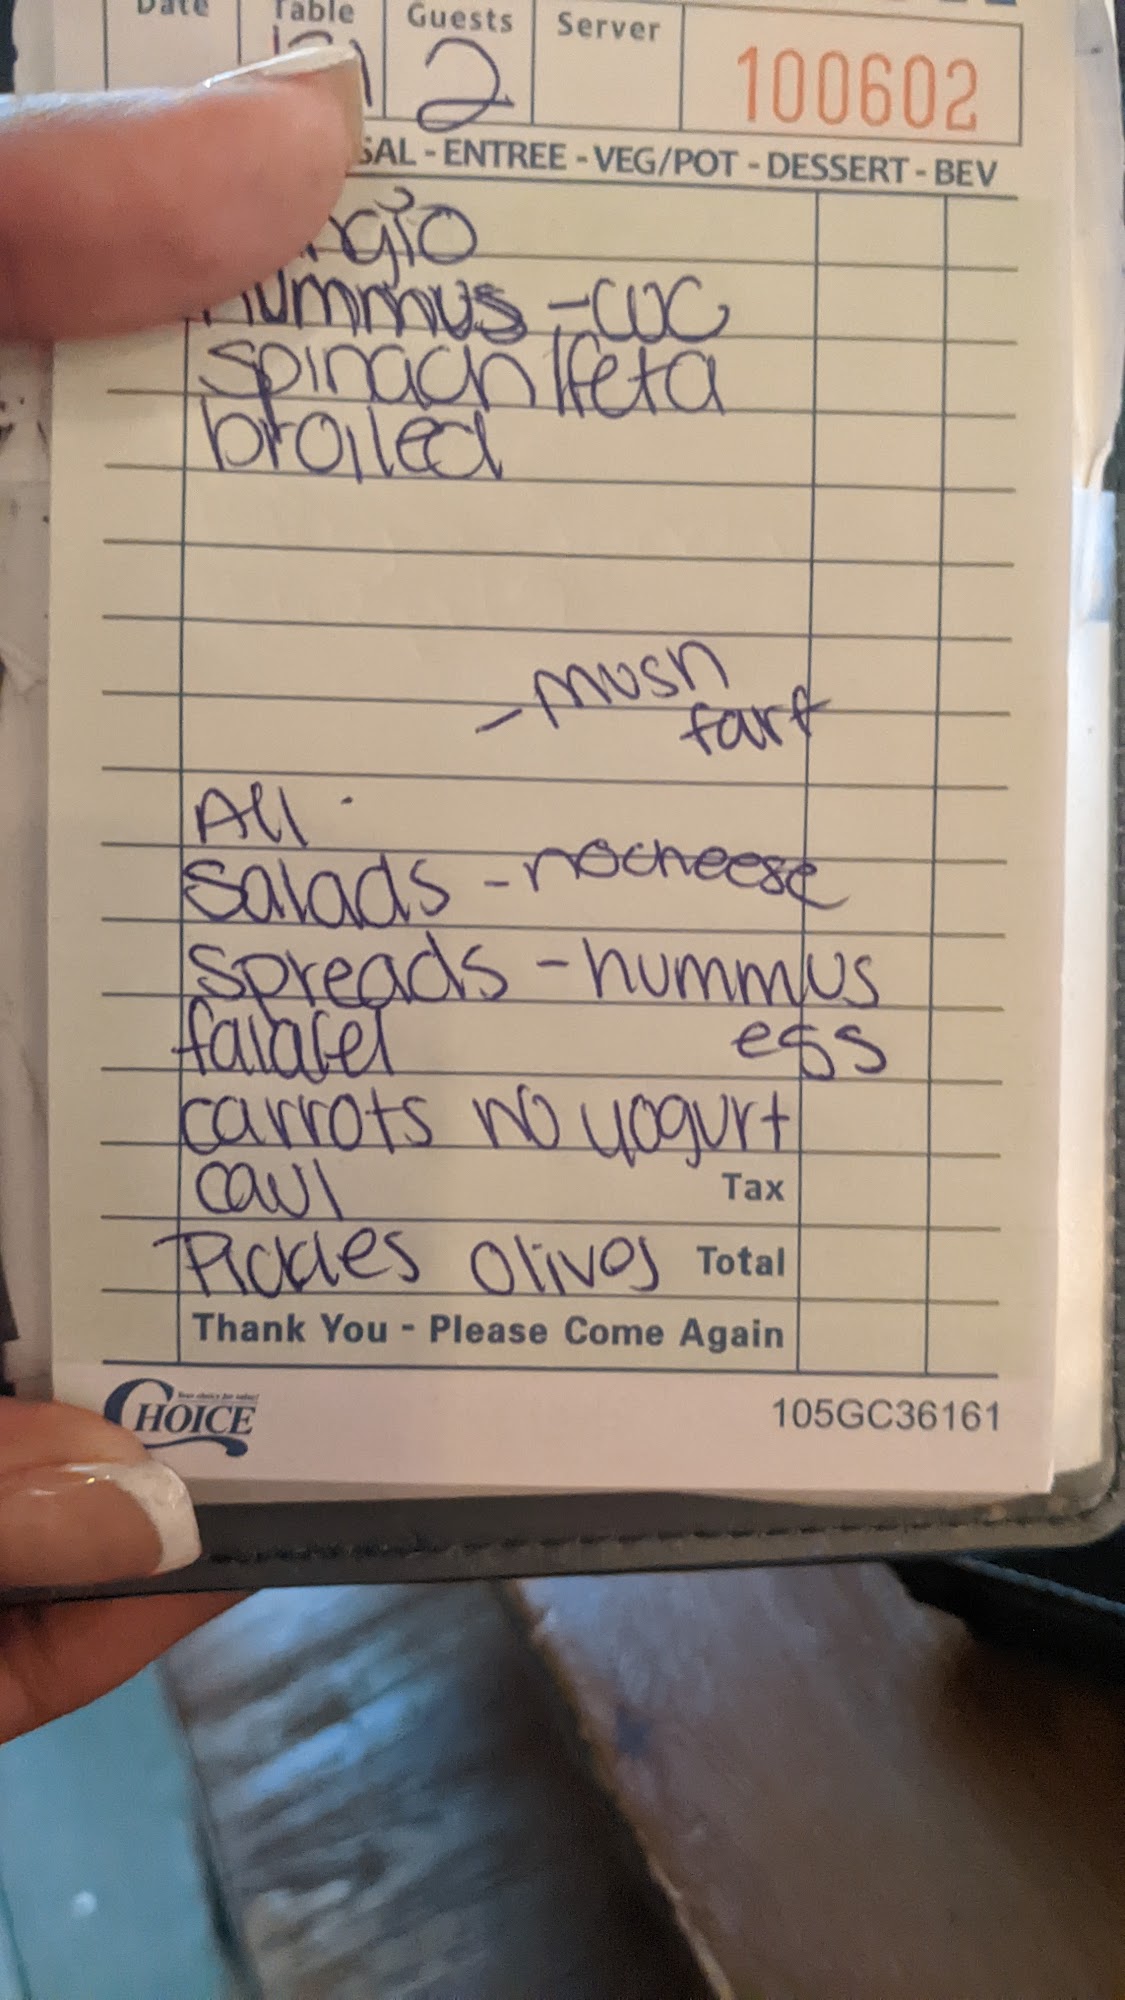 Date Table Guests Server
2 100602
SAL - ENTREE - VEG/POT - DESSERT - BEV
hummus - cuc
spinach / feta
broiled
- mush
fart
All
Salads - no cheese
spreads - hummus
falafel egg
carrots no yogurt
caul Tax
Pickles Olives Total
Thank You - Please Come Again
CHOICE 105GC36161